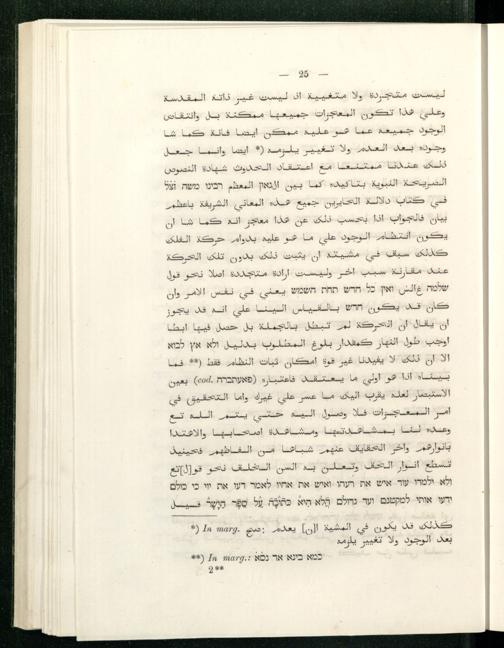 — 25 —
ليست متجردة ولا متغيية اذ ليست غير ذاتة المقدسة
وعلي هذا تكون المعجزات جميعها ممكنة بل وانتقاص
الوجود جميعه عما هو عليه ممكن ايضا فانة كما شا
وجوده بعد العدم ولا تغيير يلزمه (* ايضا وانما جعل
ذلك عندنا ممتنعا مع اعتقاد الحدوث شهادة النصوص
الصريحة النبوية بتاكيده كما بين الגאון المعظم רבינו משה זצ״ל
في كتاب دلالة الحايرين جميع هذه المعاني الشريفة باعظم
بيان فالجواب اذا بحسب ذلك عن هذا معجز انه كما شا ان
يكون انتظام الوجود علي ما هو عليه بدوام حركة الفلك
كذلك سبف في مشيته ان يثبت ذلك بدون تلك الحركة
عند مقارنة سبب اخر وليست ارادة متجددة اصلا نحو قول
שלמה ע״אלس ואין כל חדש תחת השמש يعني في نفس الامر وان
كان قد يكون חדש بالقياس الينا علي انه قد يجوز
ان يقال ان الحركة لم تبطل بالجملة بل حصل فيها ابطا
اوجب طول النهار كمقدار بلوغ المطلوب بدليل ולא אץ לבוא
الا ان ذلك لا يفيدنا غير قوة امكان ثبات النظام فقط (** فما
بيناه اذا هو اولي ما يعتقد فاعتباره (cod. פאעתברה) بعين
الاستبصار لعله يقرب اليك ما عسر علي غيرك واما التحقيق في
امر المعجزات فلا وصول اليه حتي يتم الله تع
وعده لنا بمشاهدتها ومشاهدة اصحابها والاهتدا
بانوارهم واخر الحقايف عنهم شباها من الفاظهم فحينيذ
تسطع انوار الحف وتعلن به السن الخلف نحو قو[ل]تع
ולא ילמדו עוד איש את רעהו ואיש את אחיו לאמר דעו את ייי כי כולם
ידעו אותי למקטנם ועד גדולם הֲלֹא הִיא כְּתוּבָה עַל סֵפֶר הַיָּשָׁר قيل
*) In marg. صح: كذلك قد يكون في المشية ا[ن] يعدم
بعد الوجود ولا تغيير يلزمه
**) In marg.: כמא בינא אד נסא
2**